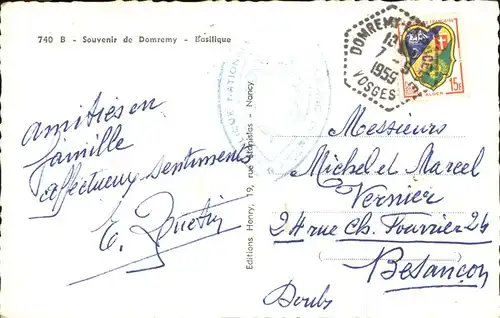 740 B - Souvenir de Domremy - Basilique
Amitiés en
famille
affectueux sentiments
E.
Editions Henry, 19, rue Stanislas - Nancy
DOMREMY
12
7 -
1956
VOSGES
15F
ALGER
Messieurs
Michel et Marcel
Vernier
24 rue Ch. Fourrier 24
Besançon
Doubs